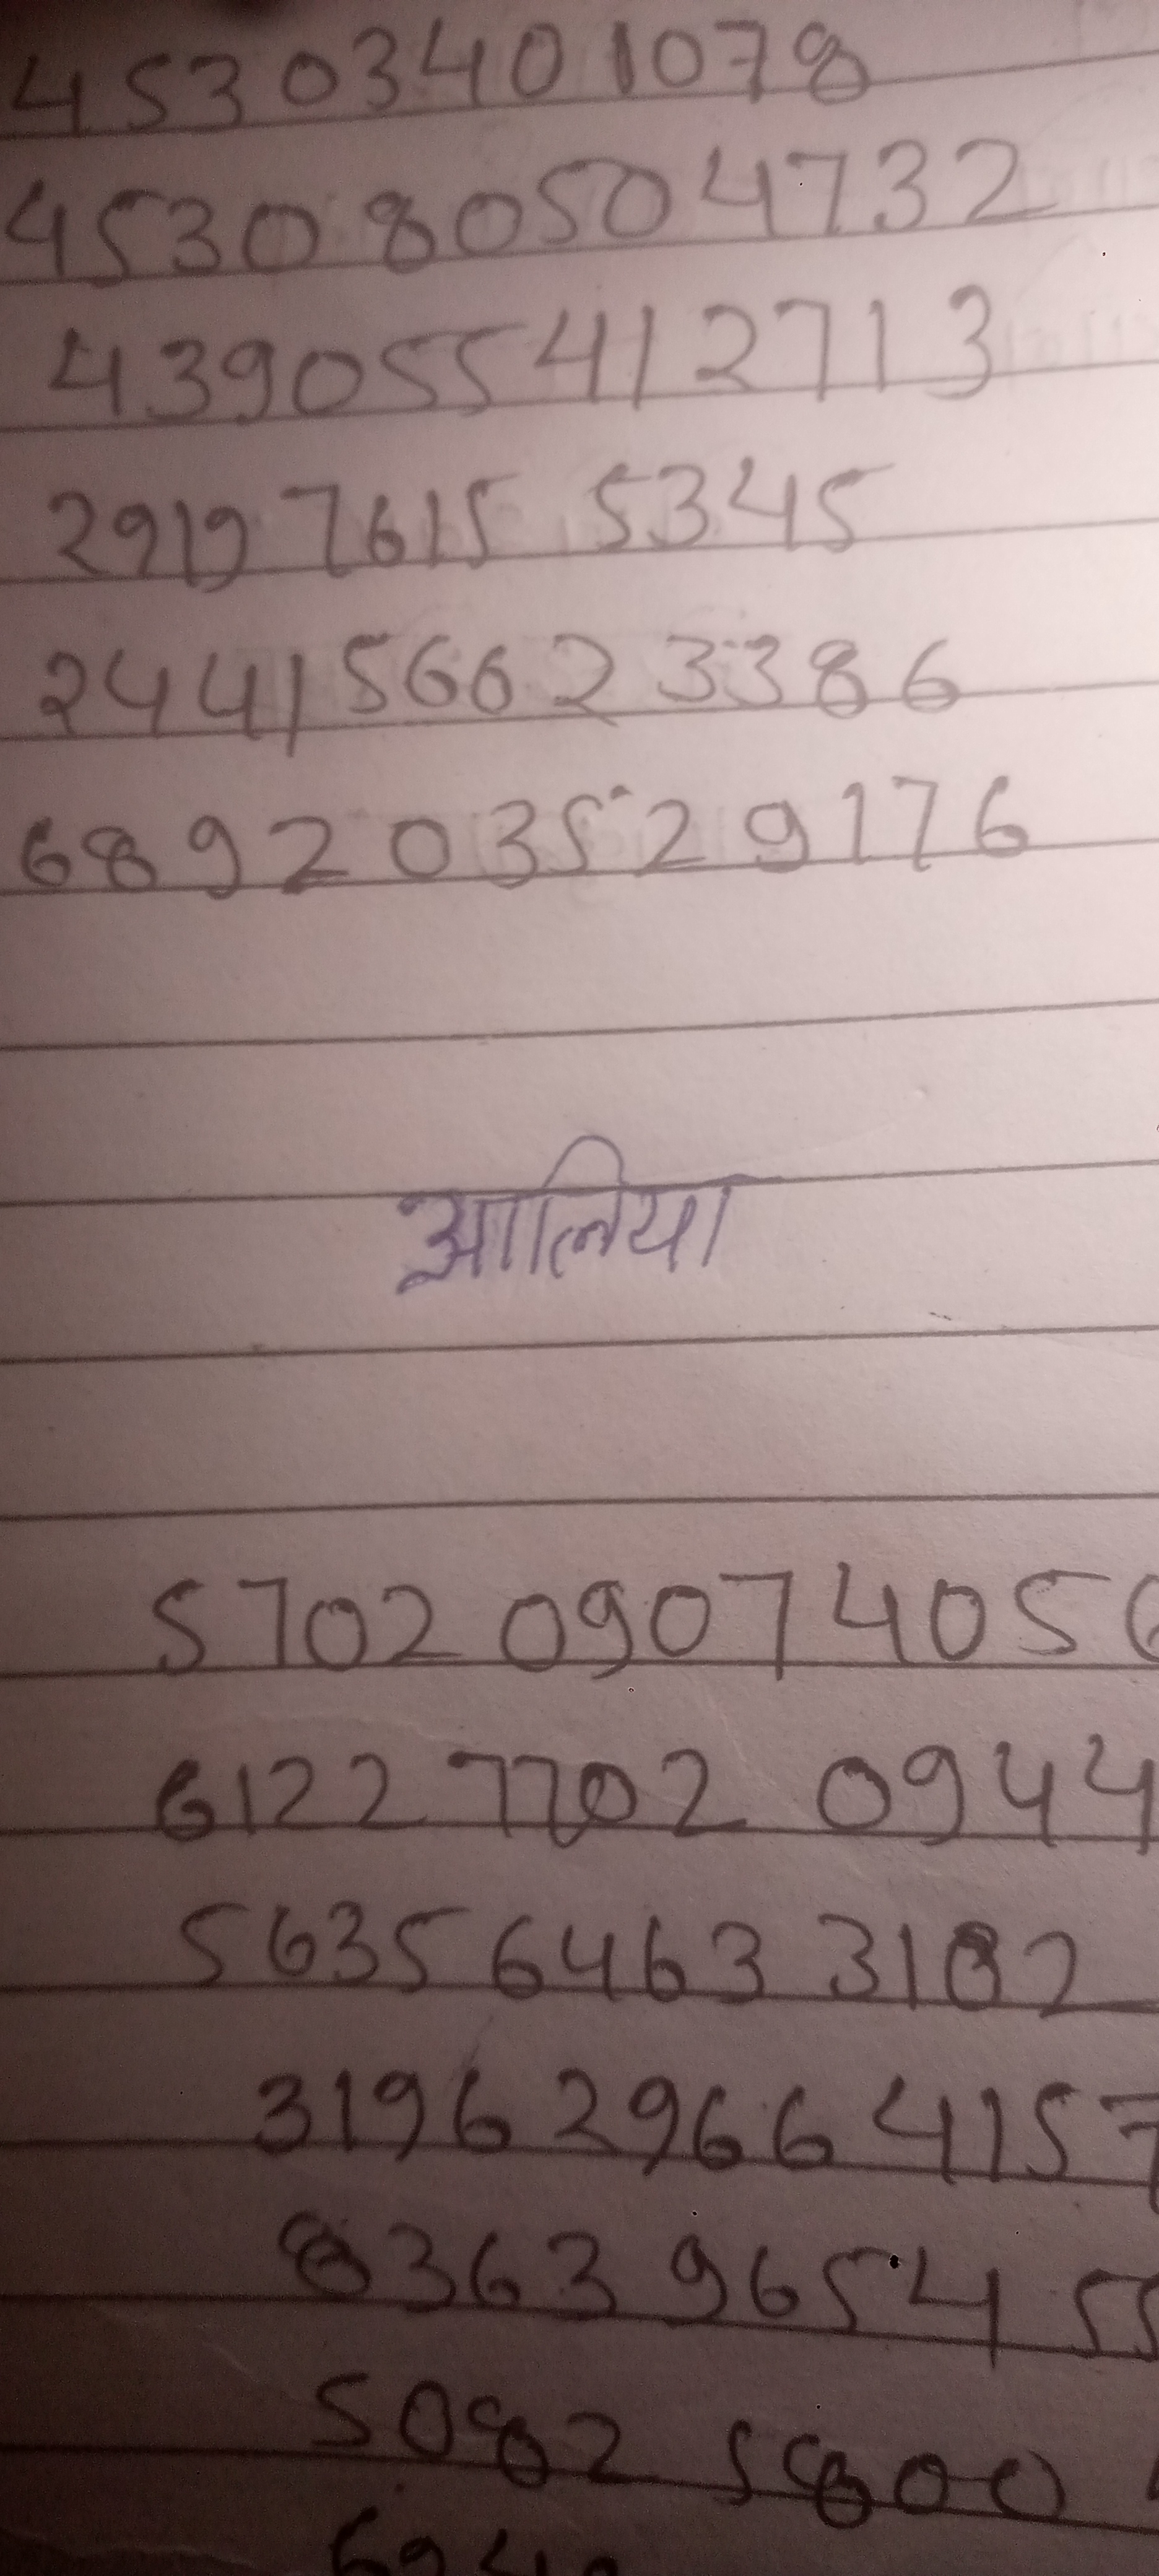 453034010 78
4530 8050 4732
439055412713
2919 7615 5345
244156623386
689203529176
आलिया
5702 0907 405
6122 7702 0944
5635 6463 3182
3196 2966 4157
8363 9654 55
5082 5800